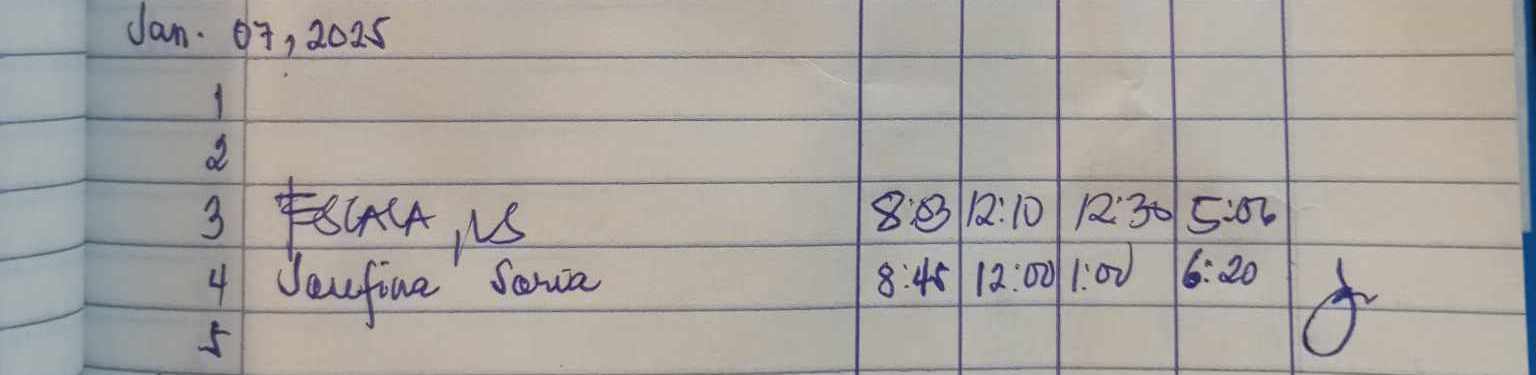 Jan. 07, 2025
1
2
3 ESCALA, NS 8:03 12:10 12:30 5:06
4 Soria 8:45 12:00 1:00 6:20
5